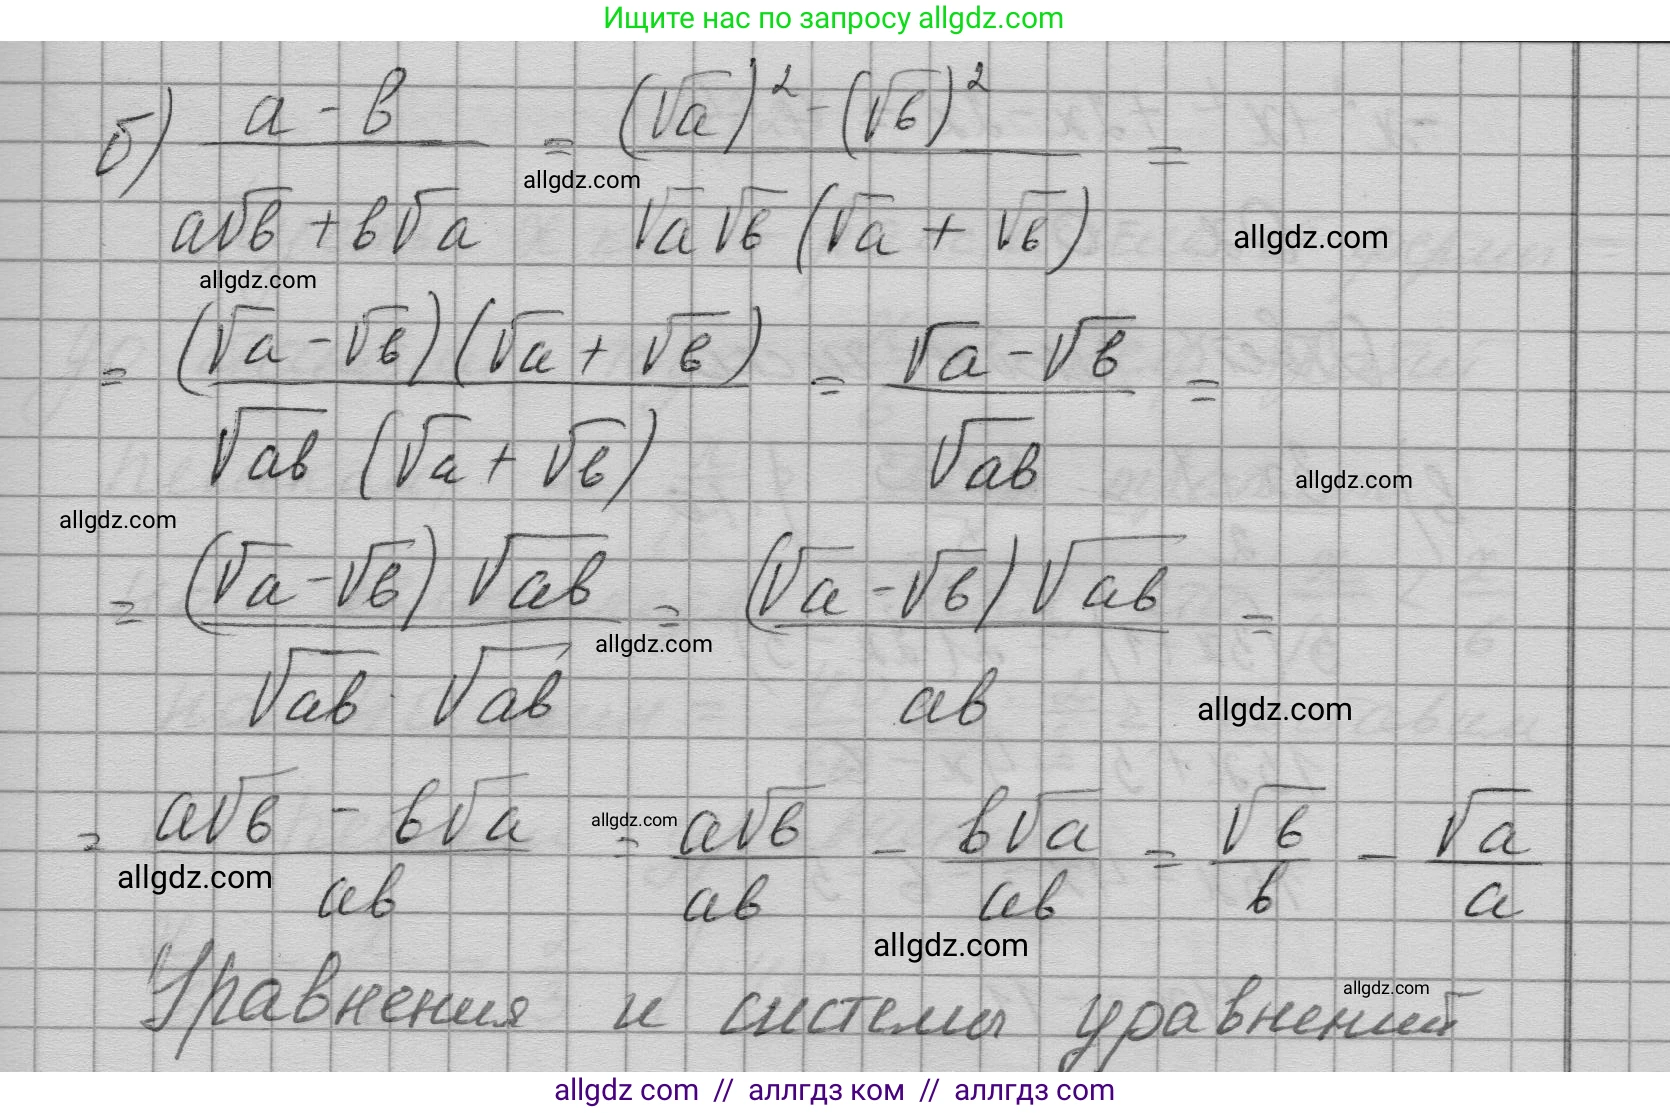 Ищите нас по запросу allgdz.com
б) (a - в)/(a√в + в√a) = ((√a)² - (√в)²)/(√a √в (√a + √в)) =
allgdz.com
allgdz.com
allgdz.com
= ((√a - √в)(√a + √в))/(√aв (√a + √в)) = (√a - √в)/√aв =
allgdz.com
allgdz.com
= ((√a - √в) √aв)/(√aв · √aв) = ((√a - √в) √aв)/aв =
allgdz.com
allgdz.com
= (a√в - в√a)/aв = a√в/aв - в√a/aв = √в/в - √a/a
allgdz.com
allgdz.com
allgdz.com
Уравнения и системы уравнений
allgdz.com
allgdz com // аллгдз ком // аллгдз com